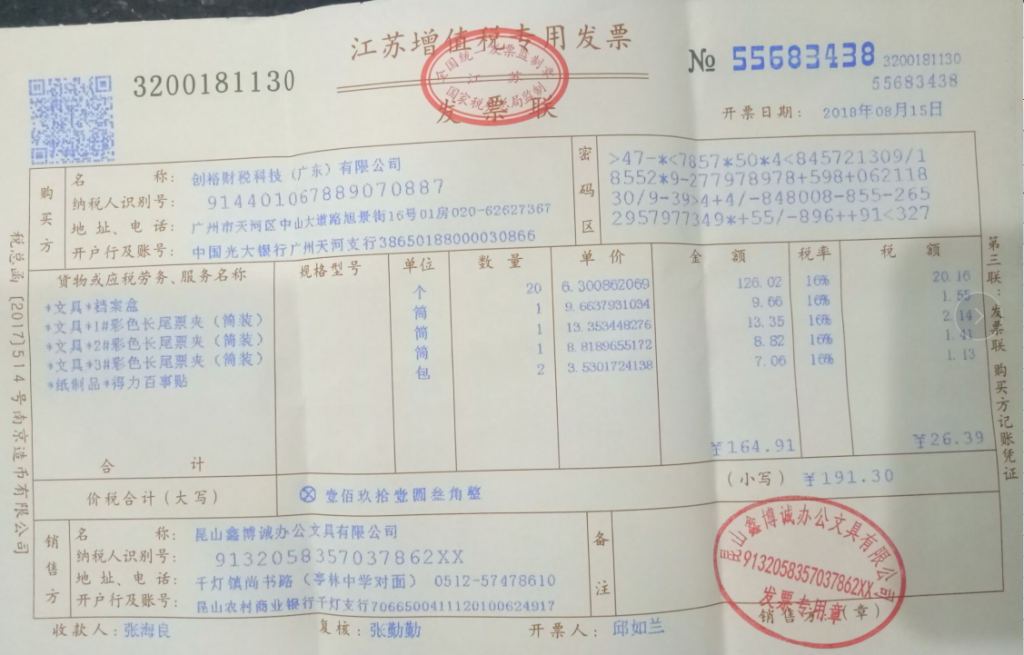 江苏增值税专用发票
发票联
全国统一发票监制章
江苏
国家税务总局监制
3200181130
№ 55683438
3200181130
55683438
开票日期: 2018年08月15日
购买方
名称: 创裕财税科技（广东）有限公司
纳税人识别号: 914401067889070887
地址、电话: 广州市天河区中山大道路旭景街16号01房020-62627367
开户行及账号: 中国光大银行广州天河支行38650188000030866
密码区
>47-*<7857*50*4<845721309/1
8552*9-277978978+598+062118
30/9-39>4+4/-848008-855-265
2957977349*+55/-896++91<327
货物或应税劳务、服务名称 规格型号 单位 数量 单价 金额 税率 税额
*文具*档案盒 个 20 6.300862069 126.02 16% 20.16
*文具*1#彩色长尾票夹（筒装） 筒 1 9.6637931034 9.66 16% 1.55
*文具*2#彩色长尾票夹（筒装） 筒 1 13.353448276 13.35 16% 2.14
*文具*3#彩色长尾票夹（筒装） 筒 1 8.8189655172 8.82 16% 1.41
*纸制品*得力百事贴 包 2 3.5301724138 7.06 16% 1.13
合计 ￥164.91 ￥26.39
价税合计（大写） ⊗ 壹佰玖拾壹圆叁角整 （小写） ￥191.30
销售方
名称: 昆山鑫博诚办公文具有限公司
纳税人识别号: 9132058357037862XX
地址、电话: 千灯镇尚书路（亭林中学对面） 0512-57478610
开户行及账号: 昆山农村商业银行千灯支行7066500411120100624917
备注
昆山鑫博诚办公文具有限公司
9132058357037862XX
发票专用章
收款人: 张海良 复核: 张勤勤 开票人: 邱如兰 销售方:（章）
税总函［2017］514号南京造币有限公司
第三联：发票联 购买方记账凭证